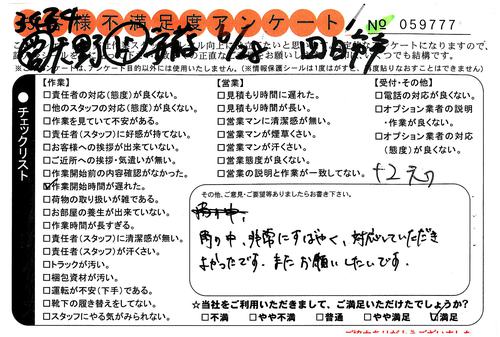 お客様不満足度アンケート
№ 059777
チェックリスト
【作業】
□責任者の対応(態度)が良くない。
□他のスタッフの対応(態度)が良くない。
□作業を見ていて不安がある。
□責任者(スタッフ)に好感が持てない。
□お客様への挨拶が出来ていない。
□ご近所への挨拶・気遣いが無い。
□作業開始前の内容確認がなかった。
☑作業開始時間が遅れた。
□荷物の取り扱いが雑である。
□お部屋の養生が出来ていない。
□作業時間が長すぎる。
□責任者(スタッフ)に清潔感が無い。
□責任者(スタッフ)が汗くさい。
□トラックが汚い。
□梱包資材が汚い。
□運転が不安(下手)である。
□靴下の履き替えをしてない。
□スタッフにやる気がみられない。
【営業】
□見積もり時間に遅れた。
□見積もり時間が長い。
□営業マンに清潔感が無い。
□営業マンが煙草くさい。
□営業マンが汗くさい。
□営業態度が良くない。
□営業の説明と作業が一致してない。
【受付・その他】
□電話の対応が良くない。
□オプション業者の説明
・作業が良くない。
□オプション業者の対応
(態度)が良くない。
その他、ご意見・ご要望等ありましたらお書き下さい。
雨の中、非常にすばやく、対応していただき
よかったです。またお願いしたいです。
☆当社をご利用いただきまして、ご満足いただけたでしょうか?
□不満 □やや不満 □普通 □やや満足 ☑満足